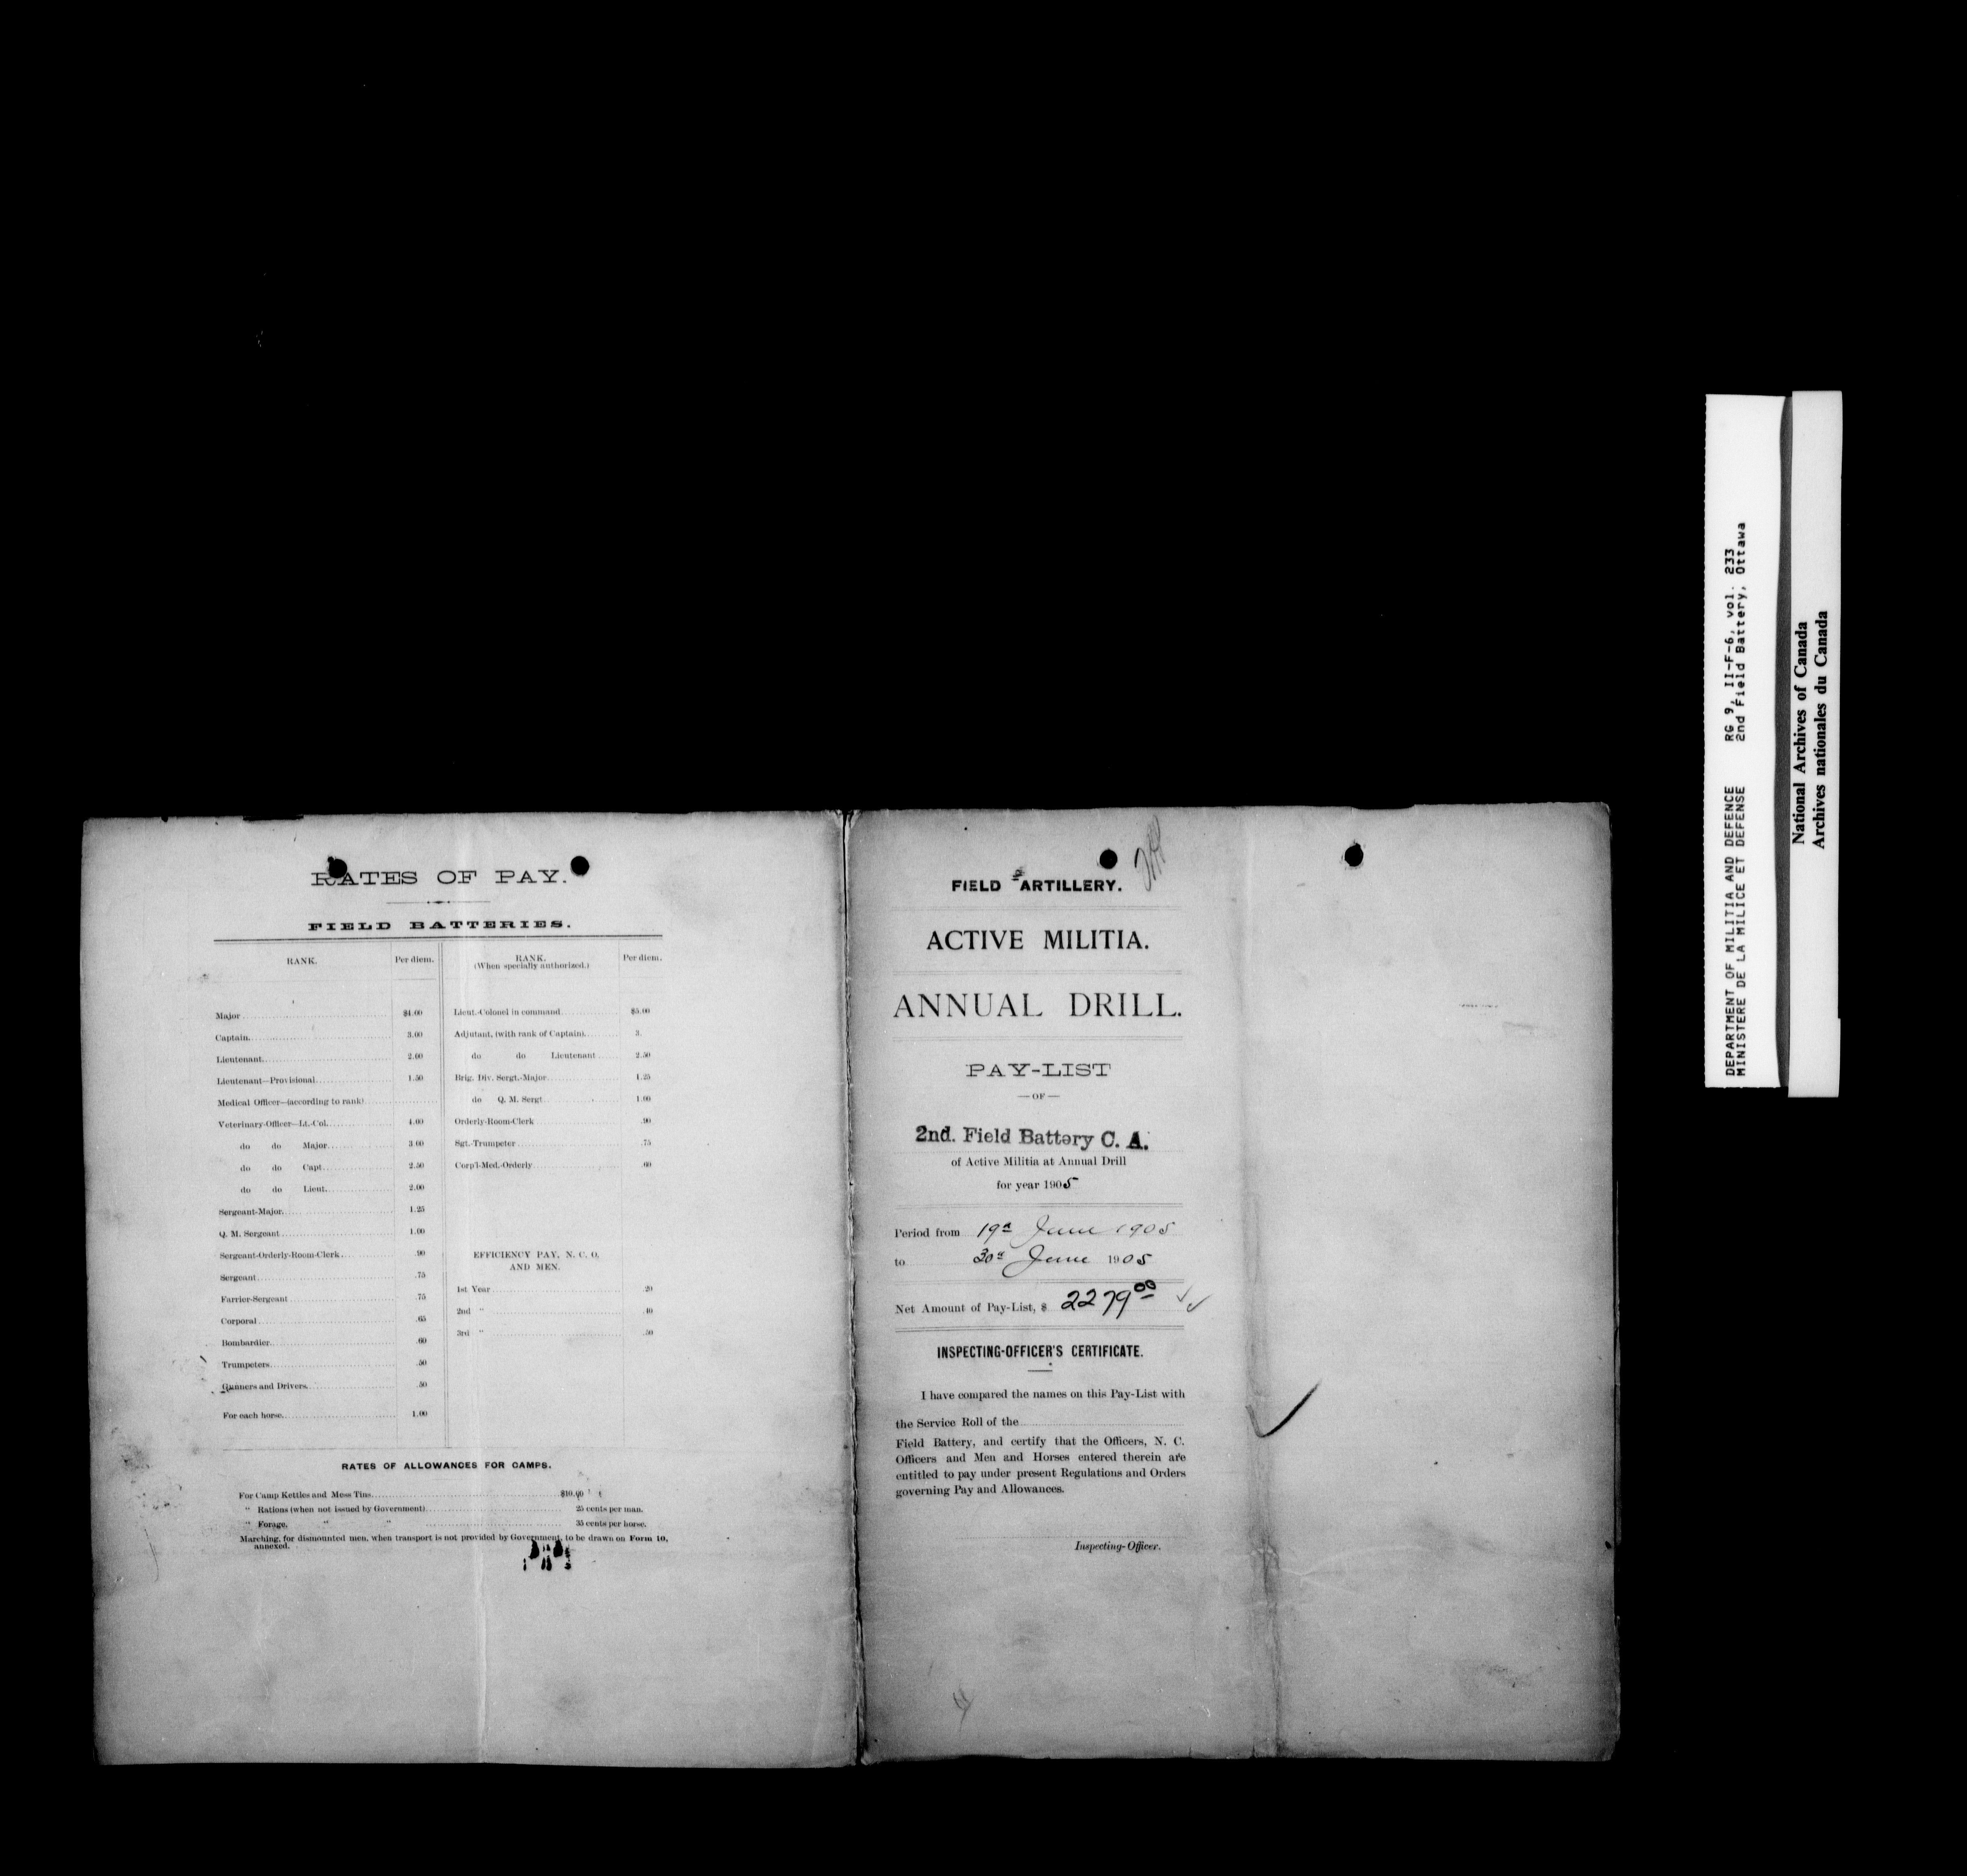 RATES OF PAY.
FIELD BATTERIES.
RANK. Per diem. RANK. (When specially authorized.) Per diem.
Major $4.00 Lieut.-Colonel in command $5.00
Captain 3.00 Adjutant, (with rank of Captain) 3.
Lieutenant 2.00 do do Lieutenant 2.50
Lieutenant—Provisional 1.50 Brig. Div. Sergt.-Major 1.25
Medical Officer—(according to rank) do Q. M. Sergt. 1.00
Veterinary-Officer—Lt.-Col. 4.00 Orderly-Room-Clerk .90
do do Major 3.00 Sgt.-Trumpeter .75
do do Capt. 2.50 Corp'l-Med.-Orderly .60
do do Lieut. 2.00
Sergeant-Major. 1.25
Q. M. Sergeant 1.00
Sergeant-Orderly-Room-Clerk .90 EFFICIENCY PAY, N. C. O.
AND MEN.
Sergeant .75
Farrier-Sergeant .75 1st Year .20
Corporal .65 2nd " .40
Bombardier .60 3rd " .50
Trumpeters .50
Gunners and Drivers .50
For each horse 1.00
RATES OF ALLOWANCES FOR CAMPS.
For Camp Kettles and Mess Tins $10.00
" Rations (when not issued by Government) 25 cents per man.
" Forage, " " 35 cents per horse.
Marching, for dismounted men, when transport is not provided by Government, to be drawn on Form 10,
annexed.
FIELD ARTILLERY.
ACTIVE MILITIA.
ANNUAL DRILL.
PAY-LIST
—OF—
2nd. Field Battery C. A.
of Active Militia at Annual Drill
for year 1905
Period from 19th June 1905
to 30th June 1905
Net Amount of Pay-List, $ 2279 00
INSPECTING-OFFICER'S CERTIFICATE.
I have compared the names on this Pay-List with
the Service Roll of the
Field Battery, and certify that the Officers, N. C.
Officers and Men and Horses entered therein are
entitled to pay under present Regulations and Orders
governing Pay and Allowances.
Inspecting-Officer.
DEPARTMENT OF MILITIA AND DEFENCE RG 9, II-F-6, vol. 233
MINISTERE DE LA MILICE ET DEFENSE 2nd Field Battery, Ottawa
National Archives of Canada
Archives nationales du Canada